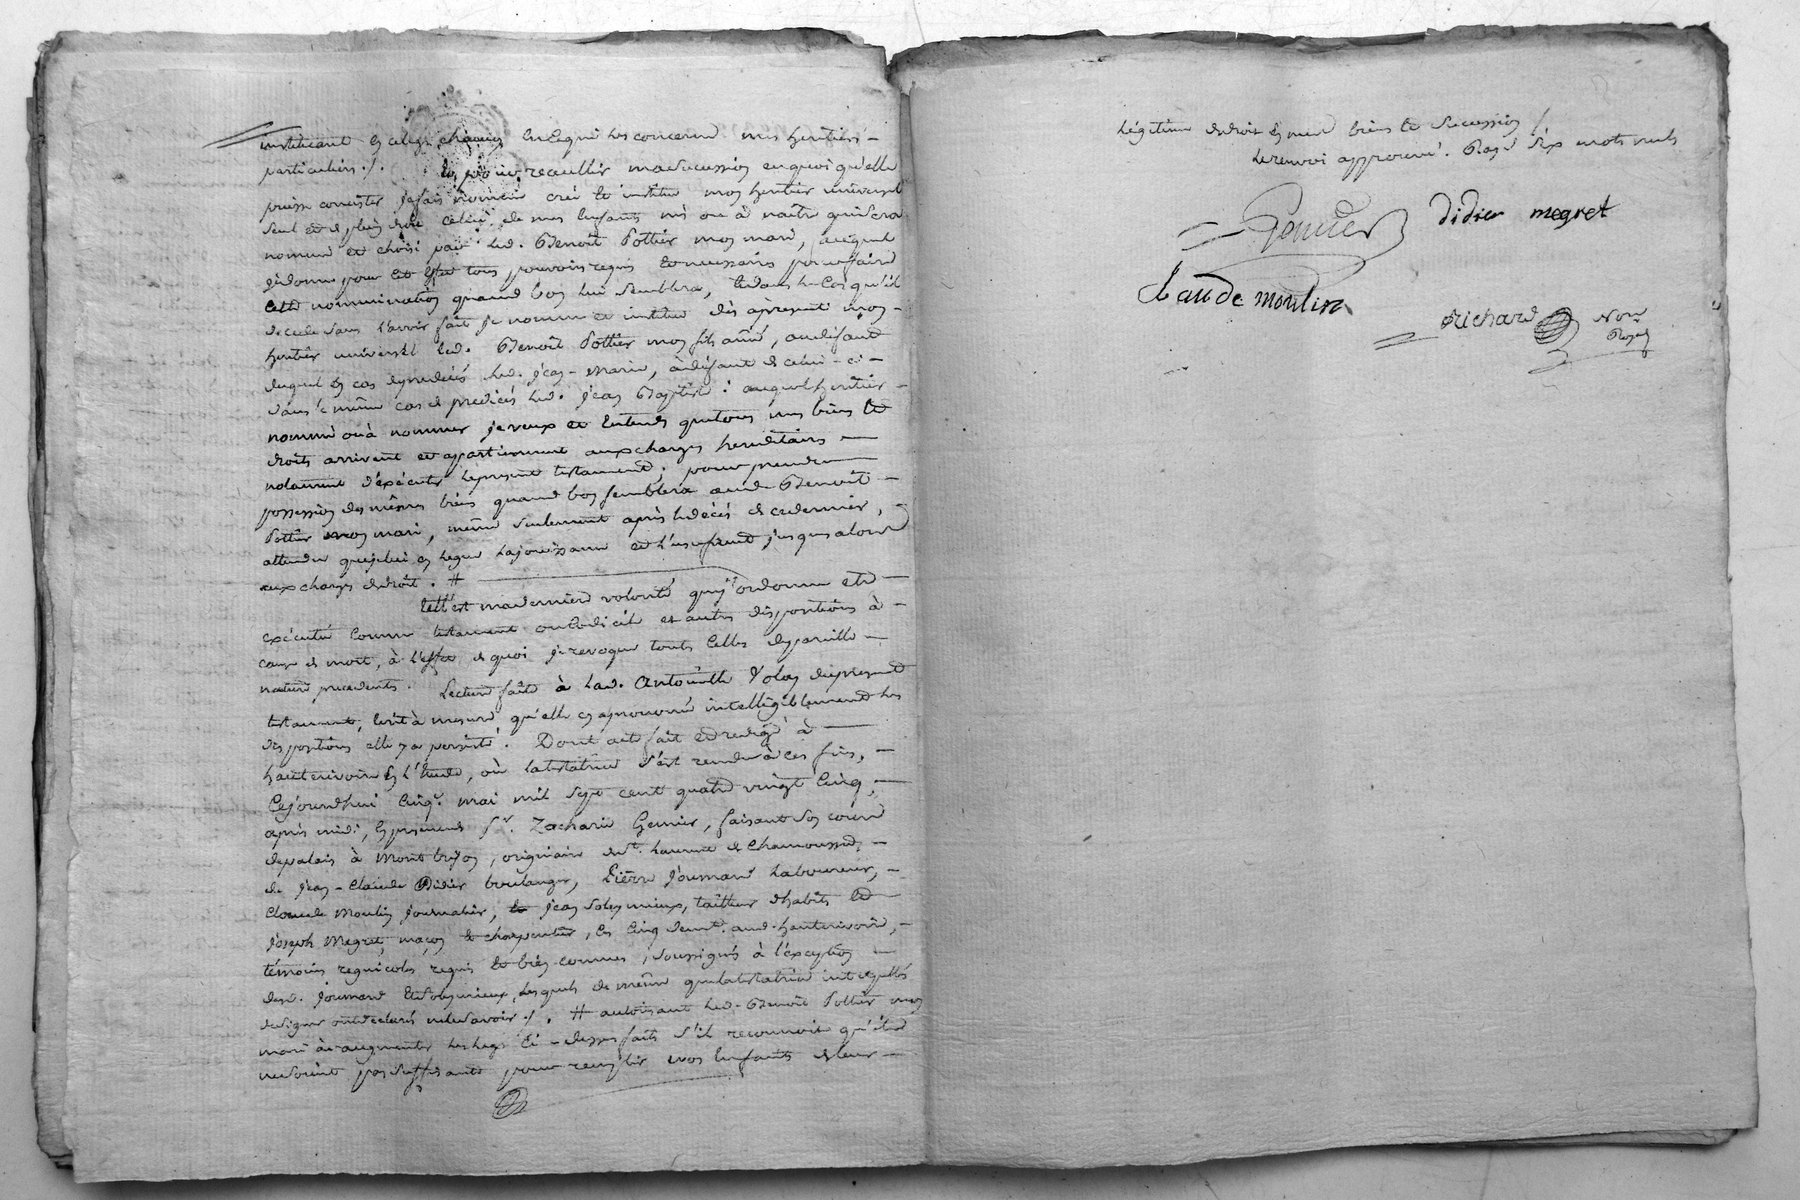 instituant en celegs chacun en cequi les concerne mes heritiers -
particuliers ./. Et pour recueillir ma succession en quoi qu'elle
puisse consister je fais nomme crée et institue mon heritier universel
seul et de plein droit celui de mes enfants nés ou à naitre qui sera
nommé et choisi par led. Benoît Pottier mon mari, auquel
je donne pour cet effet tous pouvoirs requis et necessaires pour faire
cette nomination quand bon lui semblera, et dans le cas qu'il
decede sans l'avoir faite je nomme et institue dès apresent mon -
heritier universel led. Benoît Pottier mon fils ainé, au défaut
duquel en cas de predécès led. jean - Marie, à défaut de celui - ci -
dans le même cas de predécès led. jean Baptiste : auquel heritier -
nommé ou à nommer je veux et entends que tous mes biens et
droits arrivent et appartiennent aux charges hereditaires —
notamment d'exécuter le present testament, pour prendre —
possession des mêmes biens quand bon semblera aud. Benoît -
Pottier mon mari, même seulement après le décès de ce dernier, -
attendu que je lui en legue la jouissance et l'usufruit jusques alors
aux charges de droit . # —
telle est ma derniere volonté que j'ordonne etre —
exécutée comme testament ou codicile et autres dispositions à -
cause de mort, à l'effet de quoi je revoque toutes celles de pareille -
nature precedentes . Lecture faite à lad. Antoinette Volay du present
testament, ecrit à mesure qu'elle en a prononcé intelligiblement les
dispositions elle y a persisté . Dont acte fait et redigé à —
hauterivoire en l'Etude, où la testatrice s'est rendue à ces fins, -
Cejourdhui cinq. mai mil sept cent quatre vingt cinq, -
après midi, en presence de Sr. Zacharie Genier, faisant son cours
de palais à Montbrison, originaire de St. Laurent de Chamousset, -
de jean - claude Didier boulanger, Pierre joumard laboureur, -
Claude Moulin journalier, et jean Solesmieux, tailleur d'habits et
joseph Megret, maçon et charpentier, les cinq demt. aud. hauterivoire, -
témoins regnicoles requis et bien connus, soussignés à l'exception —
desd. joumard et Solesmieux, lesquels de même que la testatrice interpellés
de signer ont declaré ne le savoir ./. # autorisant led. Benoît Pottier mon
mari à augmenter les legs ci - dessus faits s'il reconnoit qu'ils
ne soient pas suffisants pour remplir nos enfants de leur —
Légitime droits en mes biens et succession /
Le renvoi approuvé . Rayé six mots nuls
Genier didier megret
Claude moulin
Richard Nore
Royal